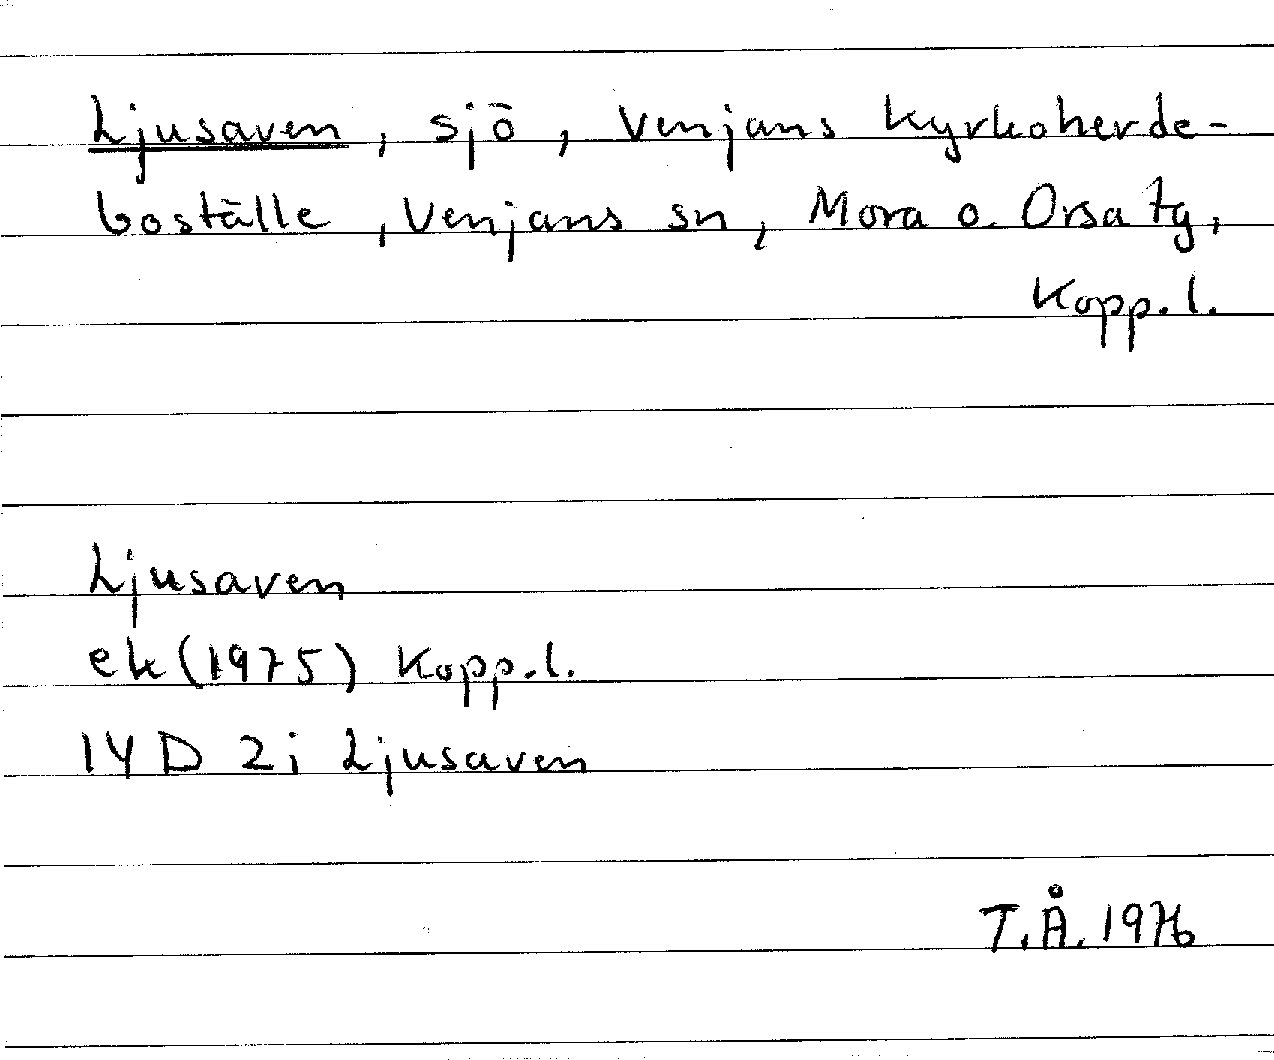 Ljusaven, sjö, Venjans kyrkoherde-
boställe, Venjans sn, Mora o. Orsa tg,
Kopp. l.
Ljusaven
ek (1975) Kopp. l.
14 D 2i Ljusaven
T.Å. 1976